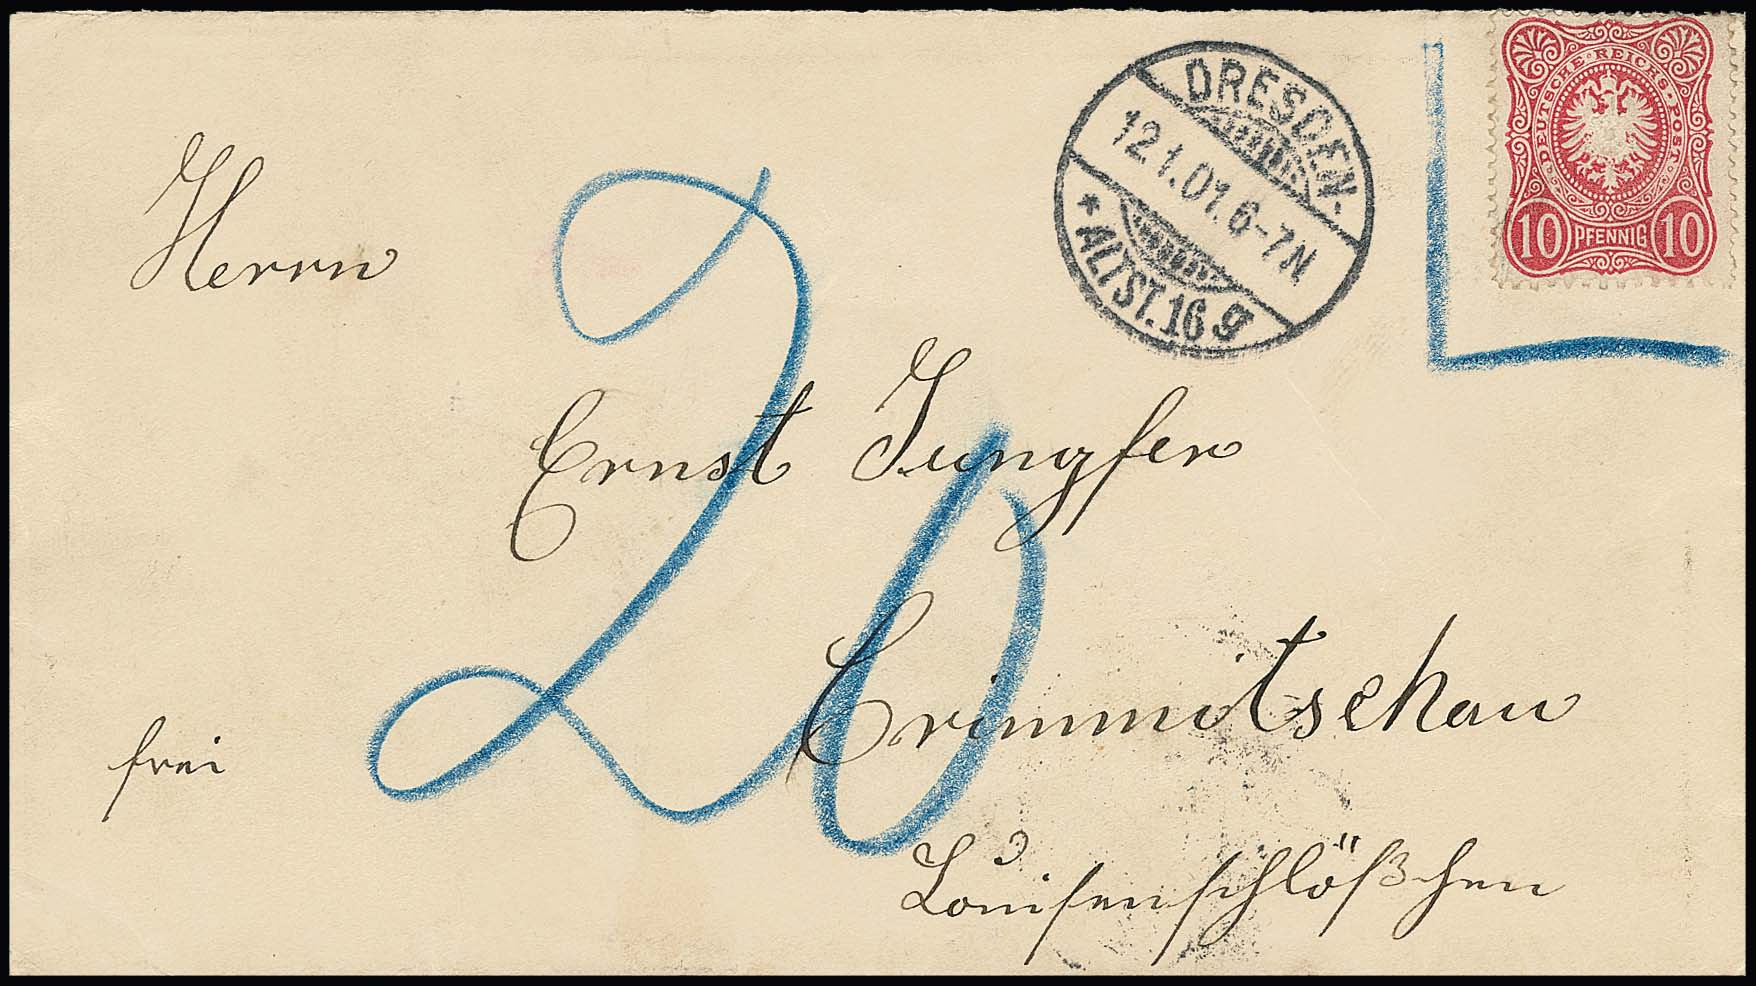 DEUTSCHE REICHS-POST
10 PFENNIG 10
DRESDEN-
12.1.01.6-7N
* ALTST.16 g
Herrn
20
Ernst Jungfer
Crimmitschau
frei
Louisenschlößchen